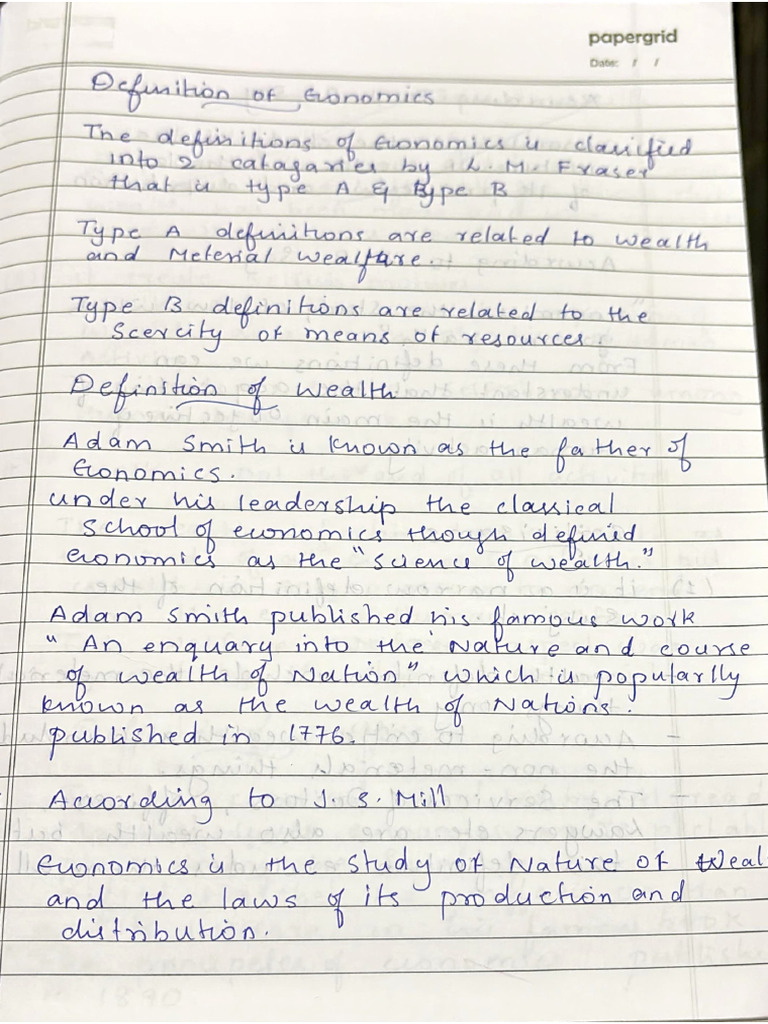 papergrid
Date: / /
Definition of Economics
The definitions of Economics is classified
into 2 catagaries by L. M. Fraser
that is type A & type B
Type A definitions are related to wealth
and Meterial Wealfare.
Type B definitions are related to the
Scercity of means of resources.
Definition of Wealth
Adam Smith is known as the father of
Economics.
under his leadership the classical
School of economics though defined
economics as the "science of wealth."
Adam Smith published his famous work
" An enquary into the Nature and course
of wealth of Nation" which is popularlly
known as the wealth of Nations.
published in 1776.
According to J. S. Mill
Economics is the study of Nature of Weal
and the laws of its production and
distribution.